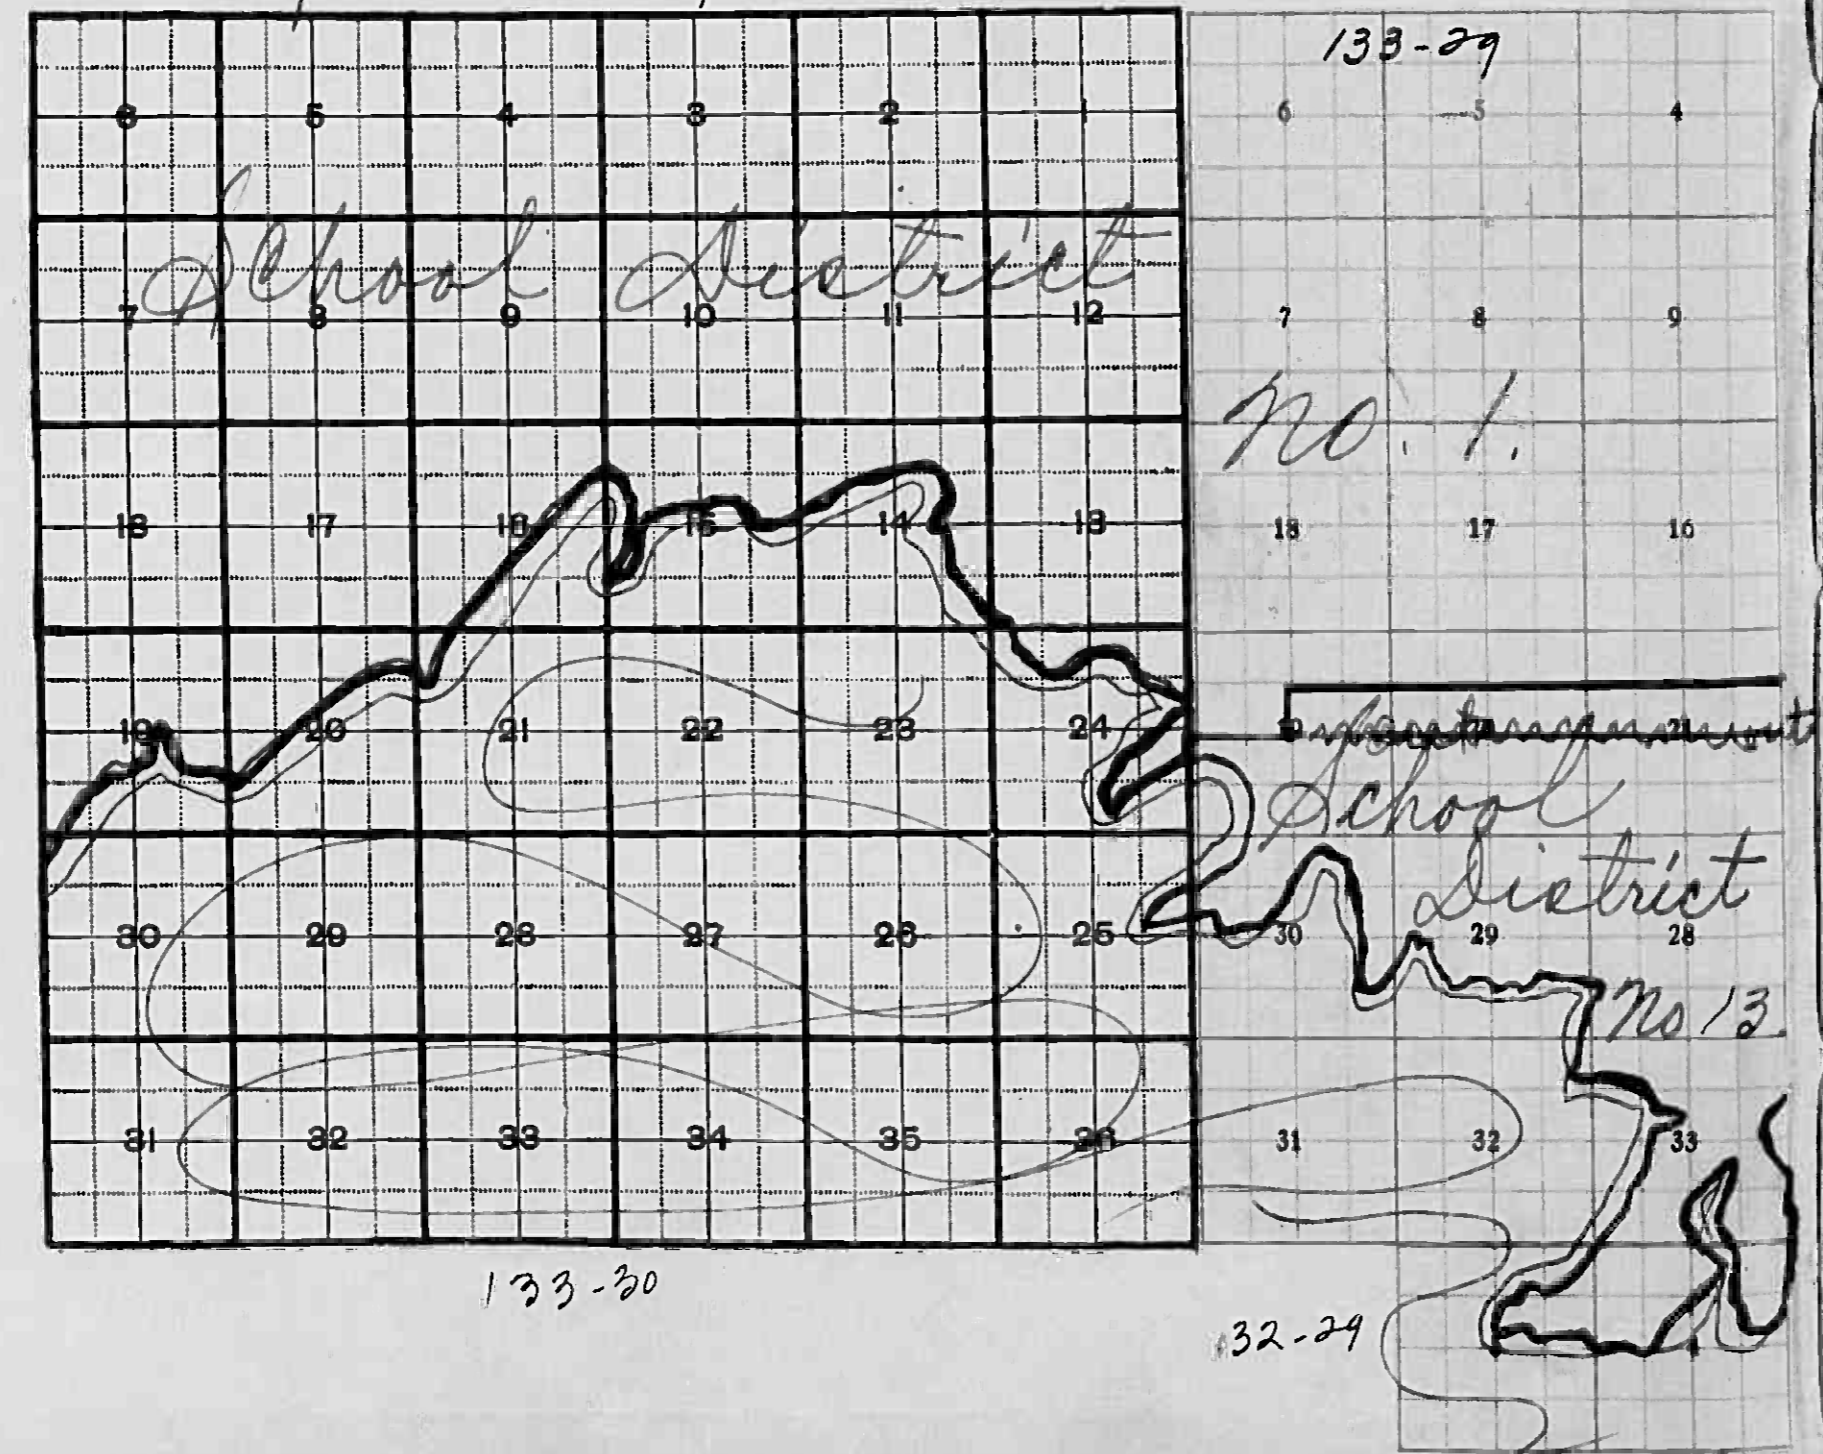 133-29
6 5 4 3 2 1 6 5 4
School District
7 8 9 10 11 12 7 8 9
No. 1.
18 17 16 15 14 13 18 17 16
19 20 21 22 23 24
School
District
30 29 28 27 26 25 30 29 28
No 13.
31 32 33 34 35 36 31 32 33
133-30
132-29